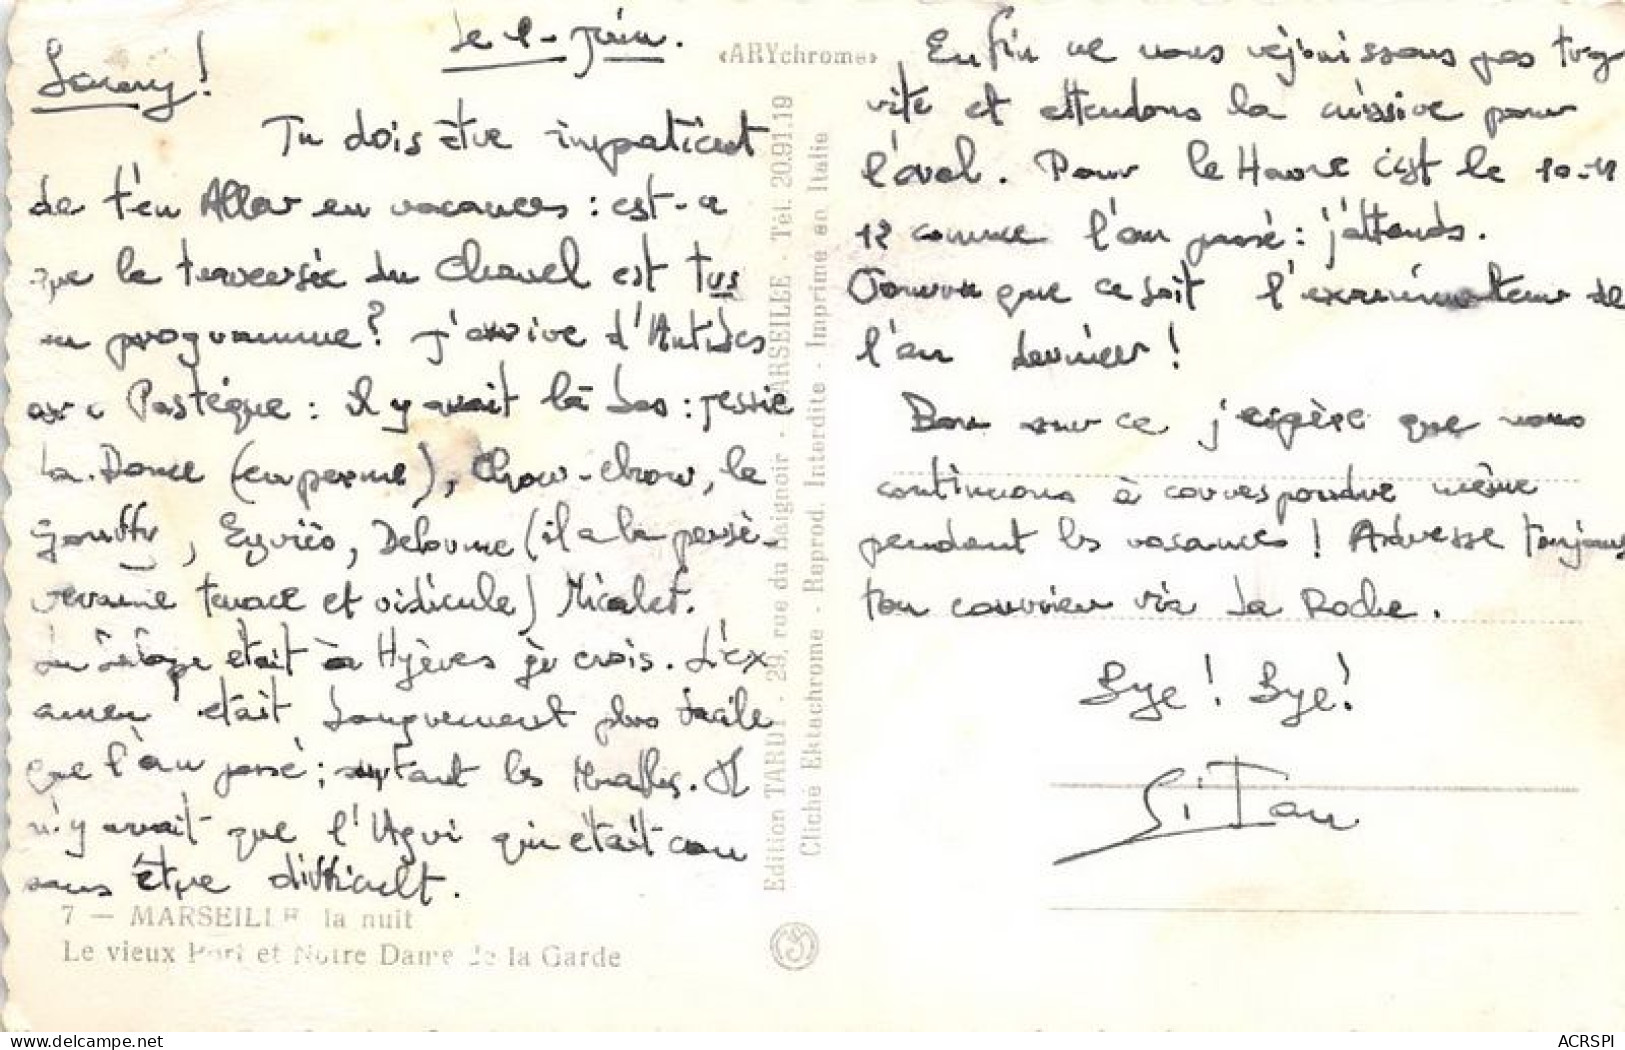 Le 1- Juin.
!
Tu dois être impatient
de t'en Aller en vacances : est-ce
que la traversée du Chanel est tjs
au programme? J'arrive d'Antibes
avec Pastègue : il y avait là bas : Jessie
La Dame (en perme), Chow-chow, le
Eyriès, Delorme (il a la persé-
verance tenace et ridicule) Micalet.
était à Hyères je crois. L'ex
amen était longuement plus facile
que l'an passé ; surtout les Maths. Il
n'y avait que l'Agri qui était con
sans être difficult.
7 — MARSEILLE la nuit
Le vieux Port et Notre Dame de la Garde
«ARYchrome»
Edition TARDY · 29, rue du Baignoir · MARSEILLE · Tél. 20.91.19
Cliché Ektachrome - Reprod. Interdite - Imprimé en Italie
Enfin ne nous réjouissons pas trop
vite et attendons la missive pour
l'oral. Pour le Havre c'est le 10-11
12 comme l'an passé : j'attends.
Pourvu que ce soit l'examinateur de
l'an dernier!
Bon sur ce j'espère que nous
continuons à correspondre même
pendant les vacances! Adresse toujours
ton courrier via La Roche.
Bye! Bye!